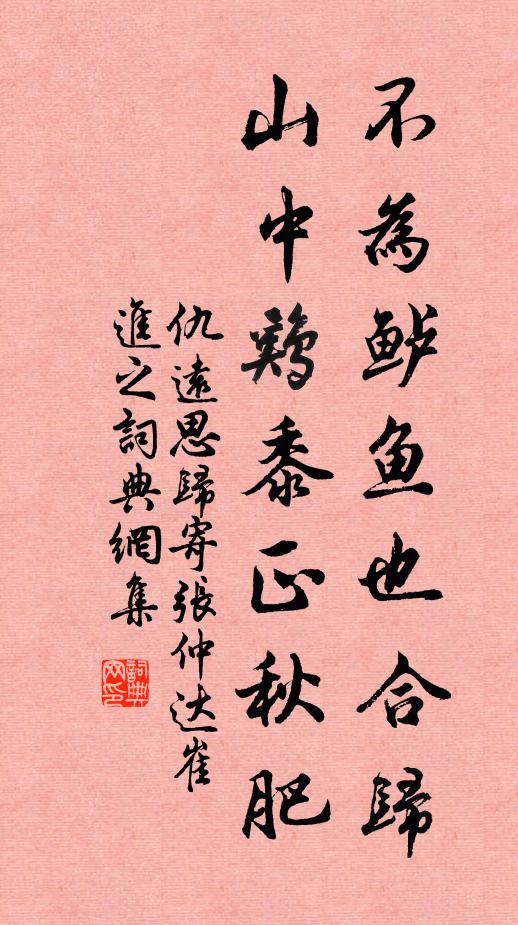 不為鲈鱼也合歸
山中鷄黍正秋肥
仇遠思歸寄張仲达崔
進之詞典網集
詞典网印